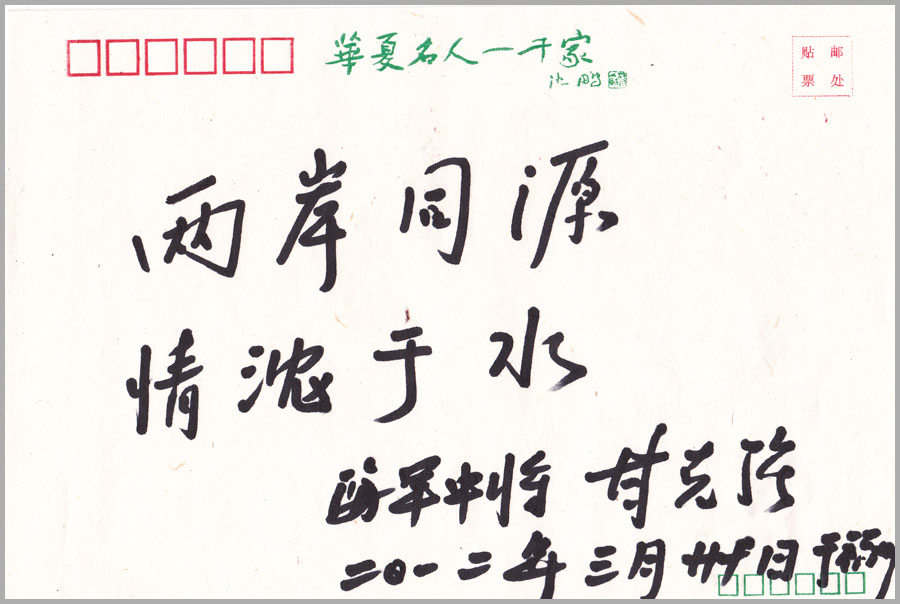 華夏名人一千家
沈鹏
贴 邮
票 处
两岸同源
情浓于水
军中将 甘克强
二〇一二年三月 日于